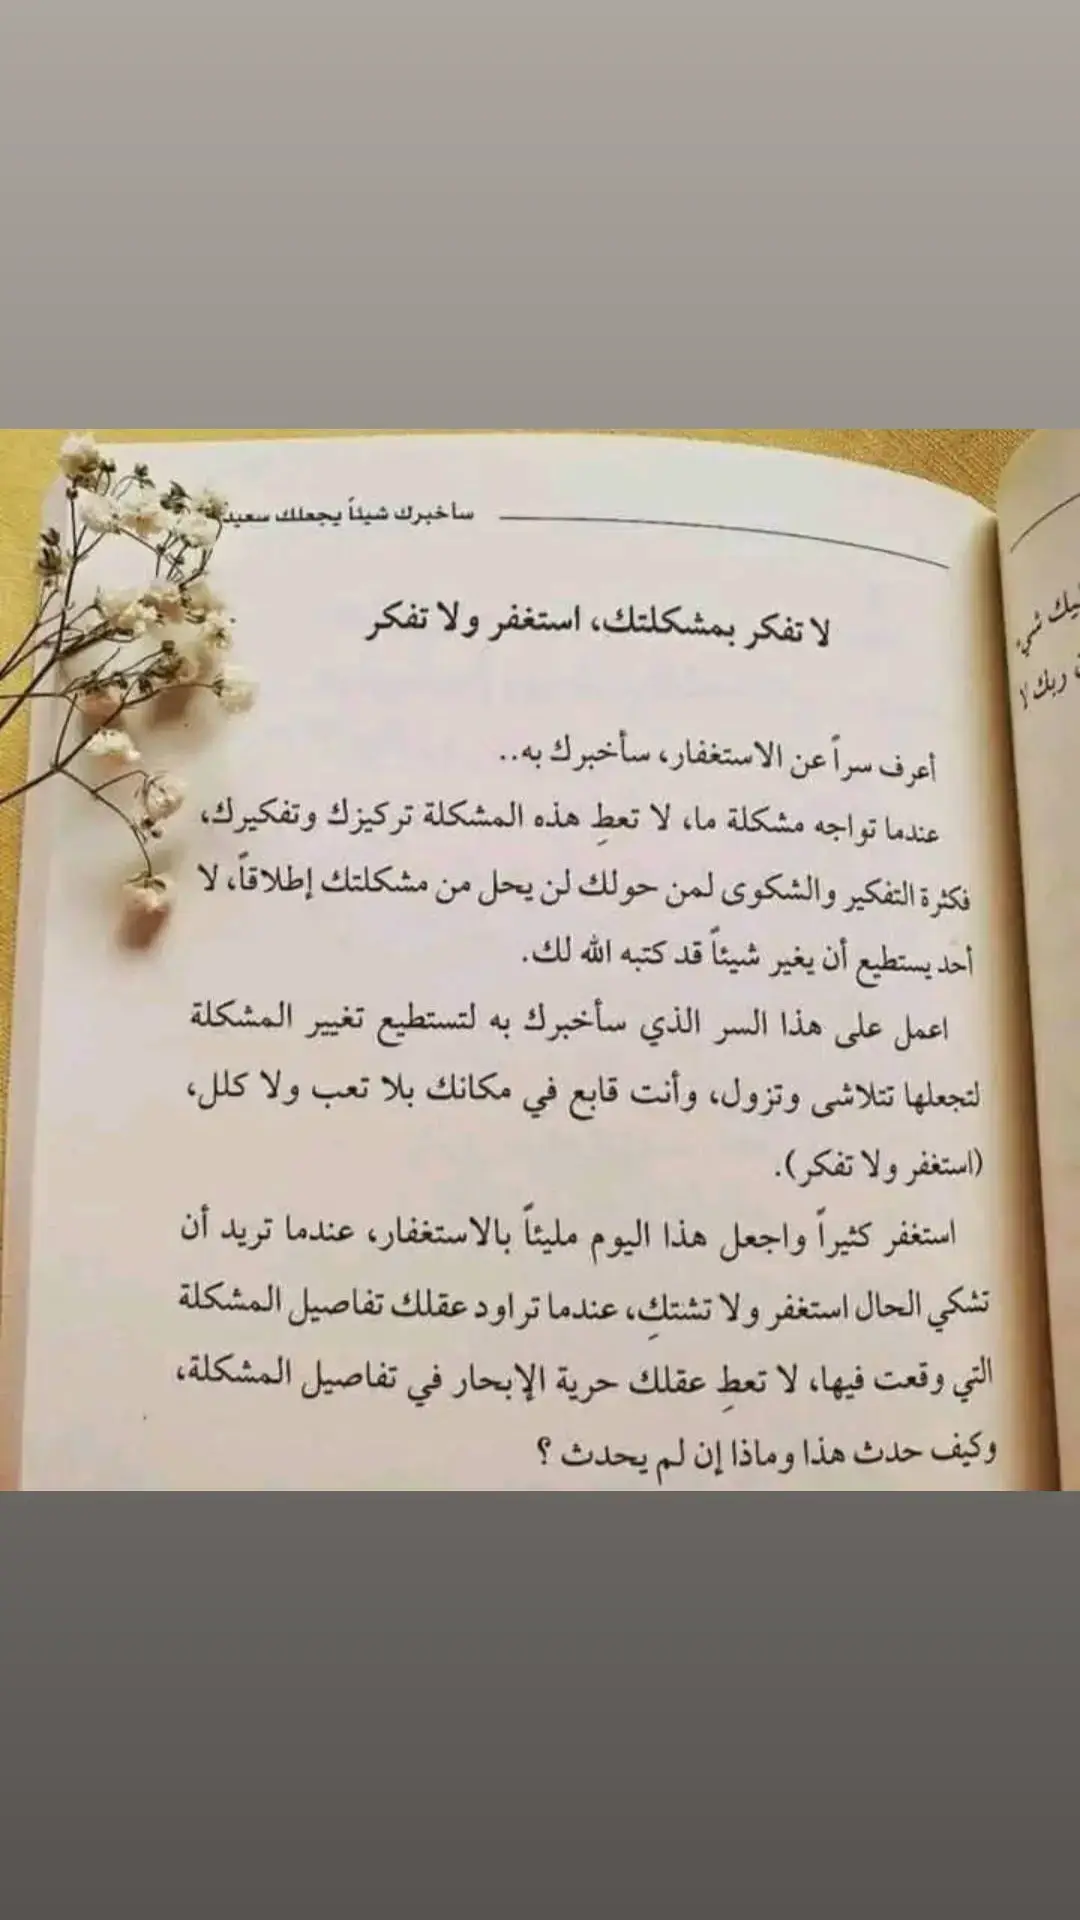 سأخبرك شيئاً يجعلك سعيد
لا تفكر بمشكلتك، استغفر ولا تفكر
أعرف سراً عن الاستغفار، سأخبرك به..
عندما تواجه مشكلة ما، لا تعطِ هذه المشكلة تركيزك وتفكيرك،
فكثرة التفكير والشكوى لمن حولك لن يحل من مشكلتك إطلاقاً، لا
أحد يستطيع أن يغير شيئاً قد كتبه الله لك.
اعمل على هذا السر الذي سأخبرك به لتستطيع تغيير المشكلة
لتجعلها تتلاشى وتزول، وأنت قابع في مكانك بلا تعب ولا كلل،
(استغفر ولا تفكر).
استغفر كثيراً واجعل هذا اليوم مليئاً بالاستغفار، عندما تريد أن
تشكي الحال استغفر ولا تشتكِ، عندما تراود عقلك تفاصيل المشكلة
التي وقعت فيها، لا تعطِ عقلك حرية الإبحار في تفاصيل المشكلة،
وكيف حدث هذا وماذا إن لم يحدث ؟
شيءٌ
ربك لا